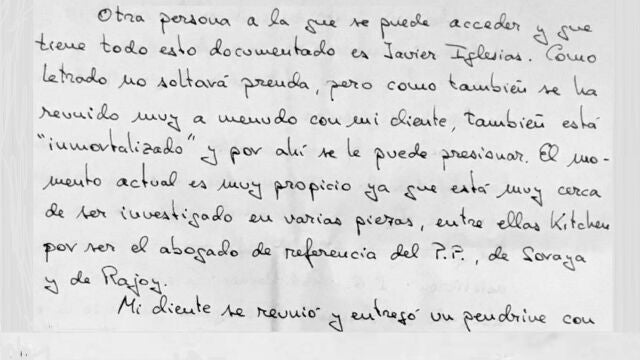 Otra persona a la que se puede acceder y que
tiene todo esto documentado es Javier Iglesias. Como
letrado no soltará prenda, pero como también se ha
reunido muy a menudo con mi cliente, también está
"inmortalizado" y por ahí se le puede presionar. El mo-
mento actual es muy propicio ya que está muy cerca
de ser investigado en varias piezas, entre ellas Kitchen
por ser el abogado de referencia del P.P., de Soraya
y de Rajoy.
Mi cliente se reunió y entregó un pendrive con